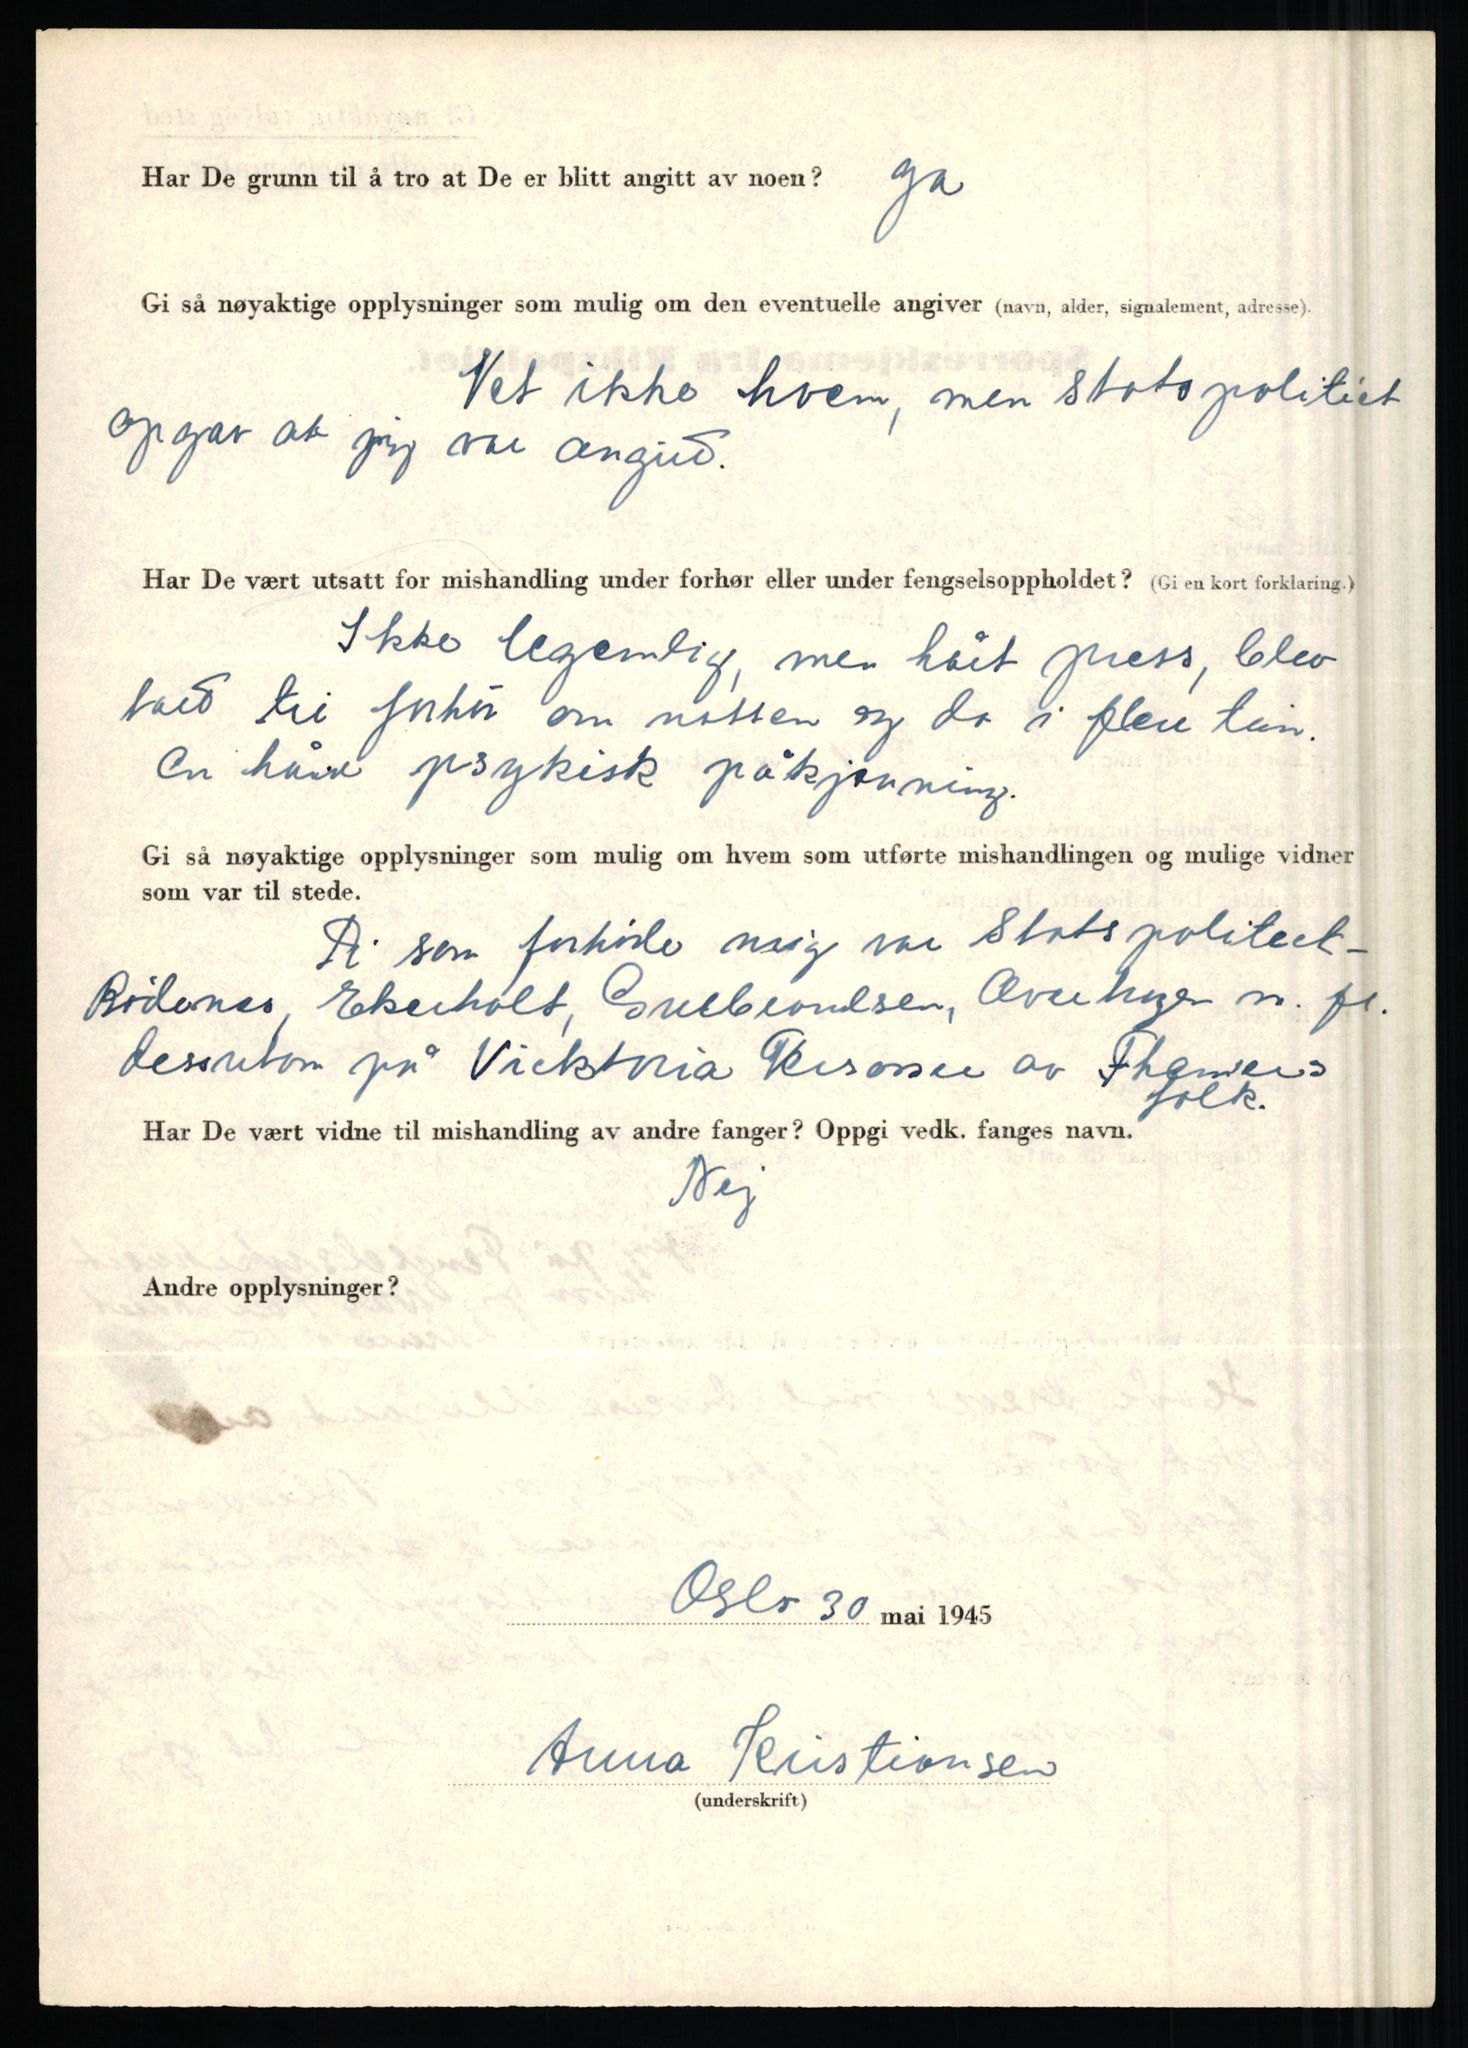 Har De grunn til å tro at De er blitt angitt av noen? Ja
Gi så nøyaktige opplysninger som mulig om den eventuelle angiver (navn, alder, signalement, adresse).
Vet ikke hvem, men Statspolitiet
opgav at jeg var angitt.
Har De vært utsatt for mishandling under forhør eller under fengselsoppholdet? (Gi en kort forklaring.)
Ikke legemlig, men hårt press, blev
til forhör om natten og da i flere tim.
En hård psykisk påkjenning.
Gi så nøyaktige opplysninger som mulig om hvem som utførte mishandlingen og mulige vidner
som var til stede.
Di som forhörde meig var Statspolitiet-
Rödenes, Ekerholt, Gulbrandsen, m. fl.
dessuten på Vicktoria Terasse av
folk.
Har De vært vidne til mishandling av andre fanger? Oppgi vedk. fanges navn.
Nej
Andre opplysninger?
Oslo 30 mai 1945
Anna Kristiansen
(underskrift)